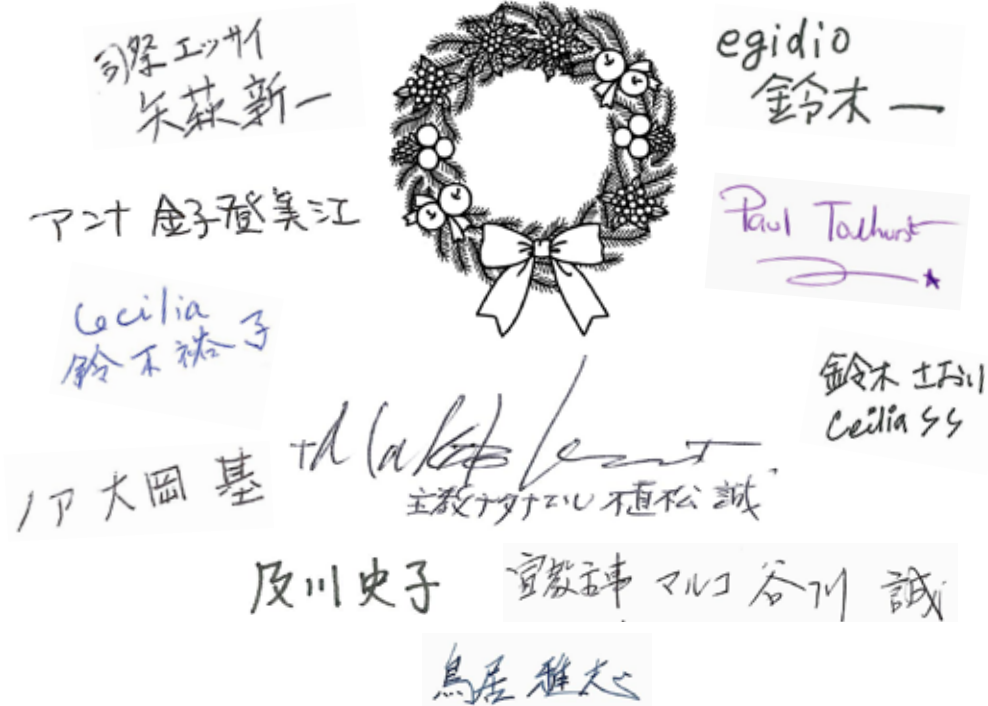 司祭 エッサイ
矢萩 新一
egidio
鈴木 一
アンナ 金子登美江
Paul Tolhurst
Cecilia
鈴木 裕子
鈴木 さおり
Cecilia S S
ノア 大岡 基
主教ナタナエル 植松 誠
及川史子
宣教主事 マルコ 谷川 誠
鳥居 雅志